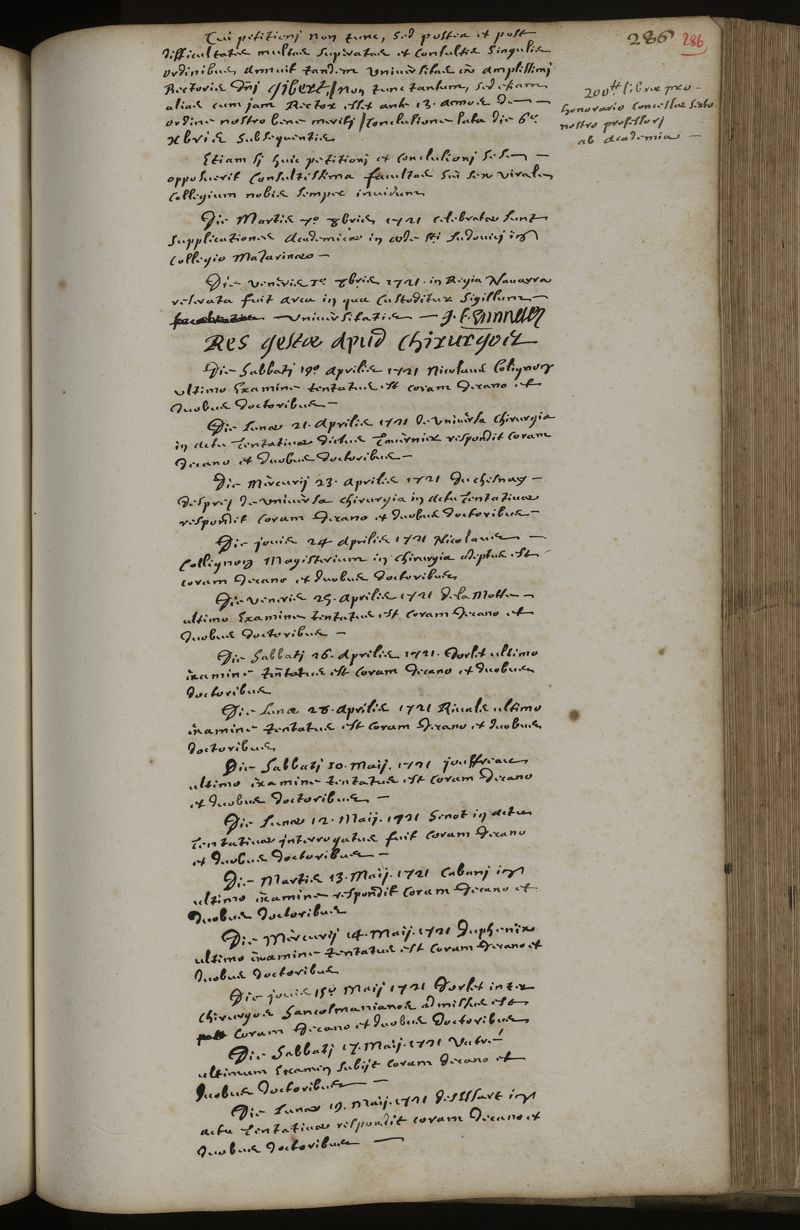 286 286
Cui petitionj non tunc, sed postea et post
difficultates multas superatas et consultis singulis
ordinibus, annuit tandem Universitas amplissimj
Rectoris Dnj Gibert, / non tunc tantum, sed etiam
alias cum jam Rector esset ante 13 annos de
ordine nostro bene meritj / conclusione lata die 6a
xbris subsequentis
200tt librae pro
honorario concessae sexto
nostro professorj
ab Academia
Etiam sj huic petitionj et conclusionj sese
opposuerit consultissima facultas seu sex virale
collegium nobis semper invidum
Die Martis 7o 8bris 1721 celebratae sunt
supplicationes Academicae in aede sti Ludovicj in
collegio Mazarinaeo
Die veneris 8bris 1721 in Regia Navarra
reserata fuit arca in qua custoditur sigillum
Universitatis
Res gestae apud Chirurgos
Die Sabbatj 19o Aprilis 1721 Nicolaus Colignon
ultimo Examine tentatus est coram Decano et
duobus doctoribus
Die Lunae 21. Aprilis 1721 de universa chirurgia
in actu tentativae dictus Tavernier respondit coram
Decano et duobus doctoribus
Die Mercurij 23. Aprilis 1721 Duchesnay
desprej de universa chirurgia in actu tentativae
respondit coram Decano et duobus doctoribus
Die jovis 24 Aprilis 1721 Nicolaus
Collignon Magisterium in chirurgia adeptus est
coram Decano et duobus doctoribus
Die veneris 25. Aprilis 1721 de la Motte
ultimo Examine tentatus est coram Decano et
duobus doctoribus
Die Sabbatj 26. Aprilis 1721. Dorlet ultimo
examine tentatus est coram Decano et duobus
doctoribus
Die Lunae 28. Aprilis 1721 Rivals ultimo
examine tentatus est coram Decano et duobus
doctoribus
Die Sabbatj 10. Maij. 1721
ultimo examine tentatus est coram Decano
et duobus doctoribus
Die Lunae 12. Maij. 1721 Senot in actu
tentativae interrogatus fuit coram Decano
et duobus doctoribus
Die Martis 13. Maij. 1721 Cabanj in
ultimo examine respondit coram Decano et
duobus doctoribus
Die Mercurij 14. Maij. 1721 Duphenix
ultimo examine tentatus est coram Decano et
duobus doctoribus
Die jovis 15o Maij 1721 Dorlet inter
chirurgos Sancosmianos admissus est
coram Decano et duobus doctoribus
Die Sabbatj 17. Maij. 1721
ultimum Examen subijt coram Decano et
duobus doctoribus
Die Lunae 19. Maij. 1721 desessart in
actu tentativae respondit coram Decano et
duobus doctoribus